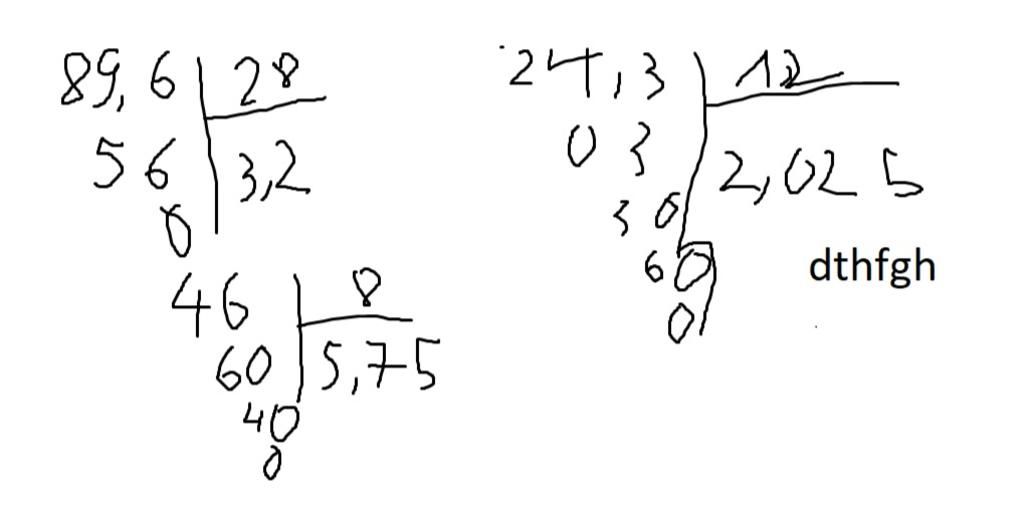 89,6 | 28
56 | 3,2
0
46 | 8
60 | 5,75
40
0
24,3 | 12
03 | 2,025
30
60
0
dthfgh